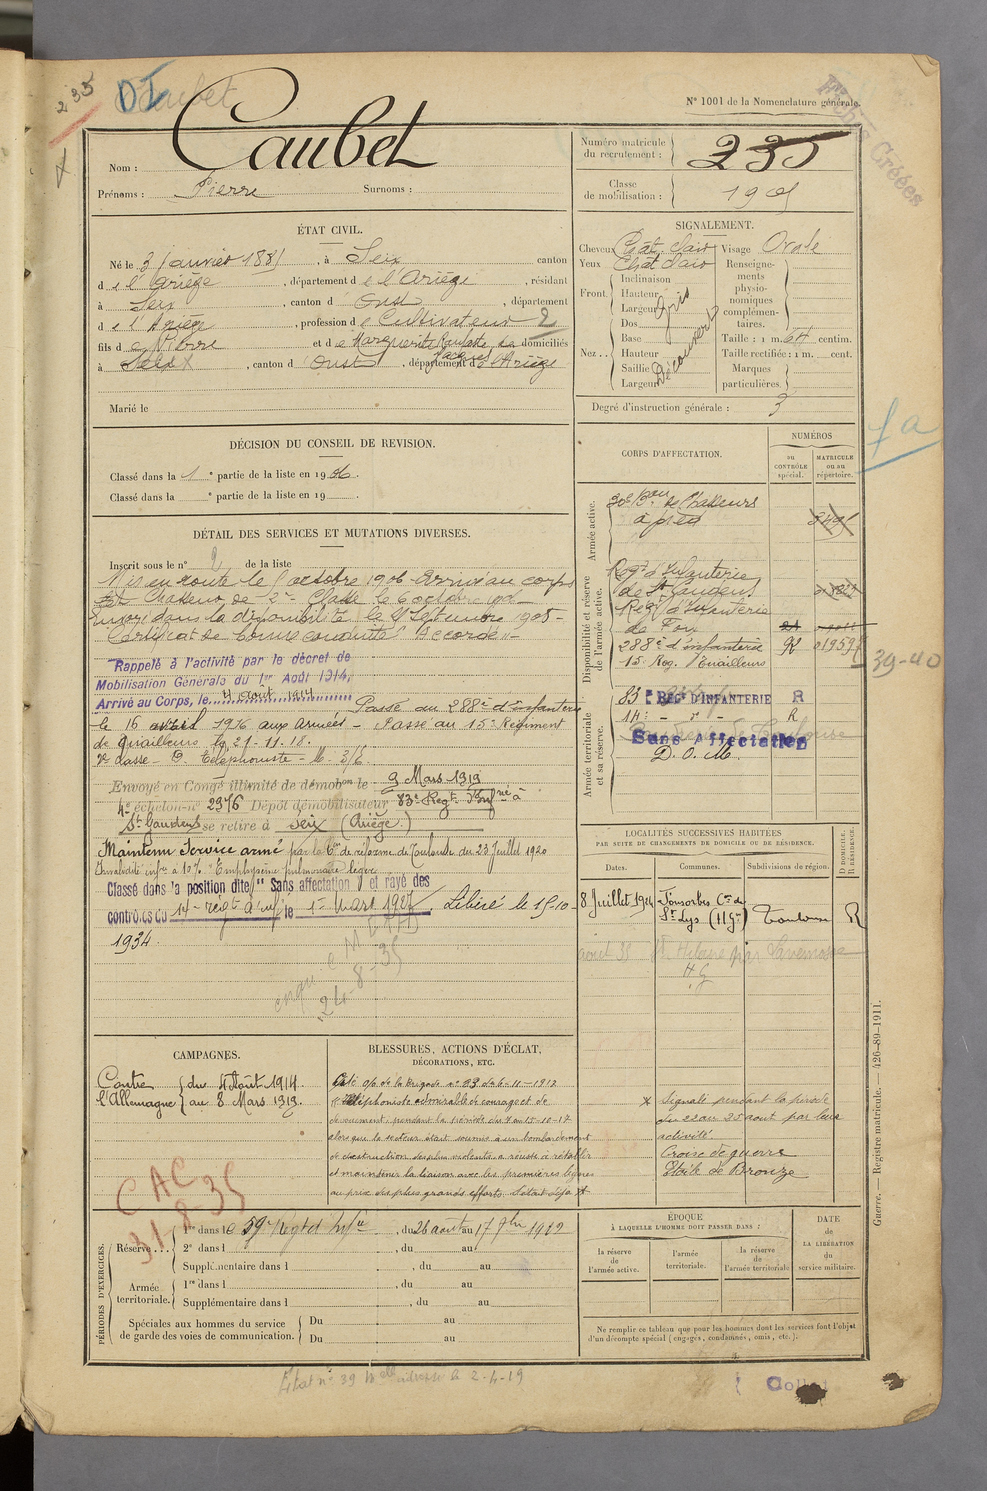 235
DI
Caubet
N° 1001 de la Nomenclature générale.
Fiches Créées
Nom : Caubet
Prénoms : Pierre Surnoms :
Numéro matricule du recrutement : 235
Classe de mobilisation : 1901
ÉTAT CIVIL.
Né le 3 janvier 1881, à Seix canton
d e l'Ariège, département d e l'Ariège, résidant
à Seix, canton d Oust, département
d e l'Ariège, profession d e Cultivateur 2
fils d e Pierre et d e Marguerite domiciliés
à Seix X, canton d Oust, département d e l'Ariège
Marié le
SIGNALEMENT.
Cheveux Chât. clair Visage Ovale
Yeux Chât clair
Front Inclinaison Hauteur Largeur
Nez Dos Base Hauteur Saillie Largeur
Gris
Découvert
Renseignements physionomiques complémentaires.
Taille : 1 m. 64 centim.
Taille rectifiée : 1 m. cent.
Marques particulières.
Degré d'instruction générale : 3
DÉCISION DU CONSEIL DE REVISION.
Classé dans la 1e partie de la liste en 1906.
Classé dans la e partie de la liste en 19 .
DÉTAIL DES SERVICES ET MUTATIONS DIVERSES.
Inscrit sous le n° 2 de la liste
Mis en route le octobre 1906 Arrivé au corps
et Chasseur de 2e Classe le 6 octobre 1906
Envoyé dans la disponibilité le Septembre 1908
Certificat de bonne conduite "Accordé"
Rappelé à l'activité par le décret de
Mobilisation Générale du 1er Août 1914,
Arrivé au Corps, le 4 Aout 1914
Passé au 288e d'infanterie
le 16 avril 1916 aux Armées - Passé au 15e Régiment
de Tirailleurs le 21-11-18.
2e classe - Téléphoniste - M. 3/6.
Envoyé en Congé illimité de démobon le 9 Mars 1919
4e échelon n° 2976 Dépôt démobilisateur 83e Regt d'Infrie à
St Gaudens se retire à Seix (Ariège)
Maintenu Service armé par la Con de réforme de Toulouse du 23 Juillet 1920
Invalidité infre à 10% "Emphysème pulmonaire léger"
Classé dans la position dite "Sans affectation" et rayé des
contrôles du 14e regt d'inf le 1er mars 1927 Libéré le 15-10-
1934.
24-8-35
CORPS D'AFFECTATION.
NUMÉROS
au CONTRÔLE spécial.
MATRICULE ou au répertoire.
Armée active.
30e Bon de Chasseurs à pied
Disponibilité et réserve de l'armée active.
Regt d'Infanterie de St Gaudens
Régt d'Infanterie de Foix
288e d'infanterie R 01959
15e Reg. Tirailleurs
39-40
fa
Armée territoriale et sa réserve.
83e Regt D'INFANTERIE R
14e - d° - R
Sans Affectation
D. O. M.
LOCALITÉS SUCCESSIVES HABITÉES
PAR SUITE DE CHANGEMENTS DE DOMICILE OU DE RÉSIDENCE.
Dates. Communes. Subdivisions de région.
D. DOMICILE. R. RÉSIDENCE.
8 Juillet 1924 Fonsorbes Con de St Lys (H Gne) Toulouse R
août 35 St Hilaire par Lavernose
H.G
CAMPAGNES.
Contre l'Allemagne { du 4 Août 1914. au 8 Mars 1919.
BLESSURES, ACTIONS D'ÉCLAT,
DÉCORATIONS, ETC.
Cité o/o de la Brigade n° 33 du 6-11-1917
"Téléphoniste admirable de courage et de
dévouement, pendant la période du 7 au 15-10-17
alors que le secteur était soumis à un bombardement
de destruction des plus violents a réussi à rétablir
et maintenir la liaison avec les premières lignes
au prix des plus grands efforts. S'était déjà X
X signalé pendant la période
du 22 au 25 aout par leur
activité
Croix de guerre
Etoile de Bronze
CAC
31-8-35
PÉRIODES D'EXERCICES.
Réserve
1re dans l e 59e Régt d'Infie, du 26 aout au 17 7bre 1912
2e dans l , du au
Supplémentaire dans l , du au
Armée territoriale.
1re dans l , du au
Supplémentaire dans l , du au
Spéciales aux hommes du service de garde des voies de communication.
Du au
Du au
ÉPOQUE
À LAQUELLE L'HOMME DOIT PASSER DANS :
la réserve de l'armée active.
l'armée territoriale.
la réserve de l'armée territoriale
DATE de LA LIBÉRATION du service militaire.
Ne remplir ce tableau que pour les hommes dont les services font l'objet
d'un décompte spécial (engagés, condamnés, omis, etc.).
Guerre. — Registre matricule. — 426-89-1911.
Etat n° 39 le 2-4-19